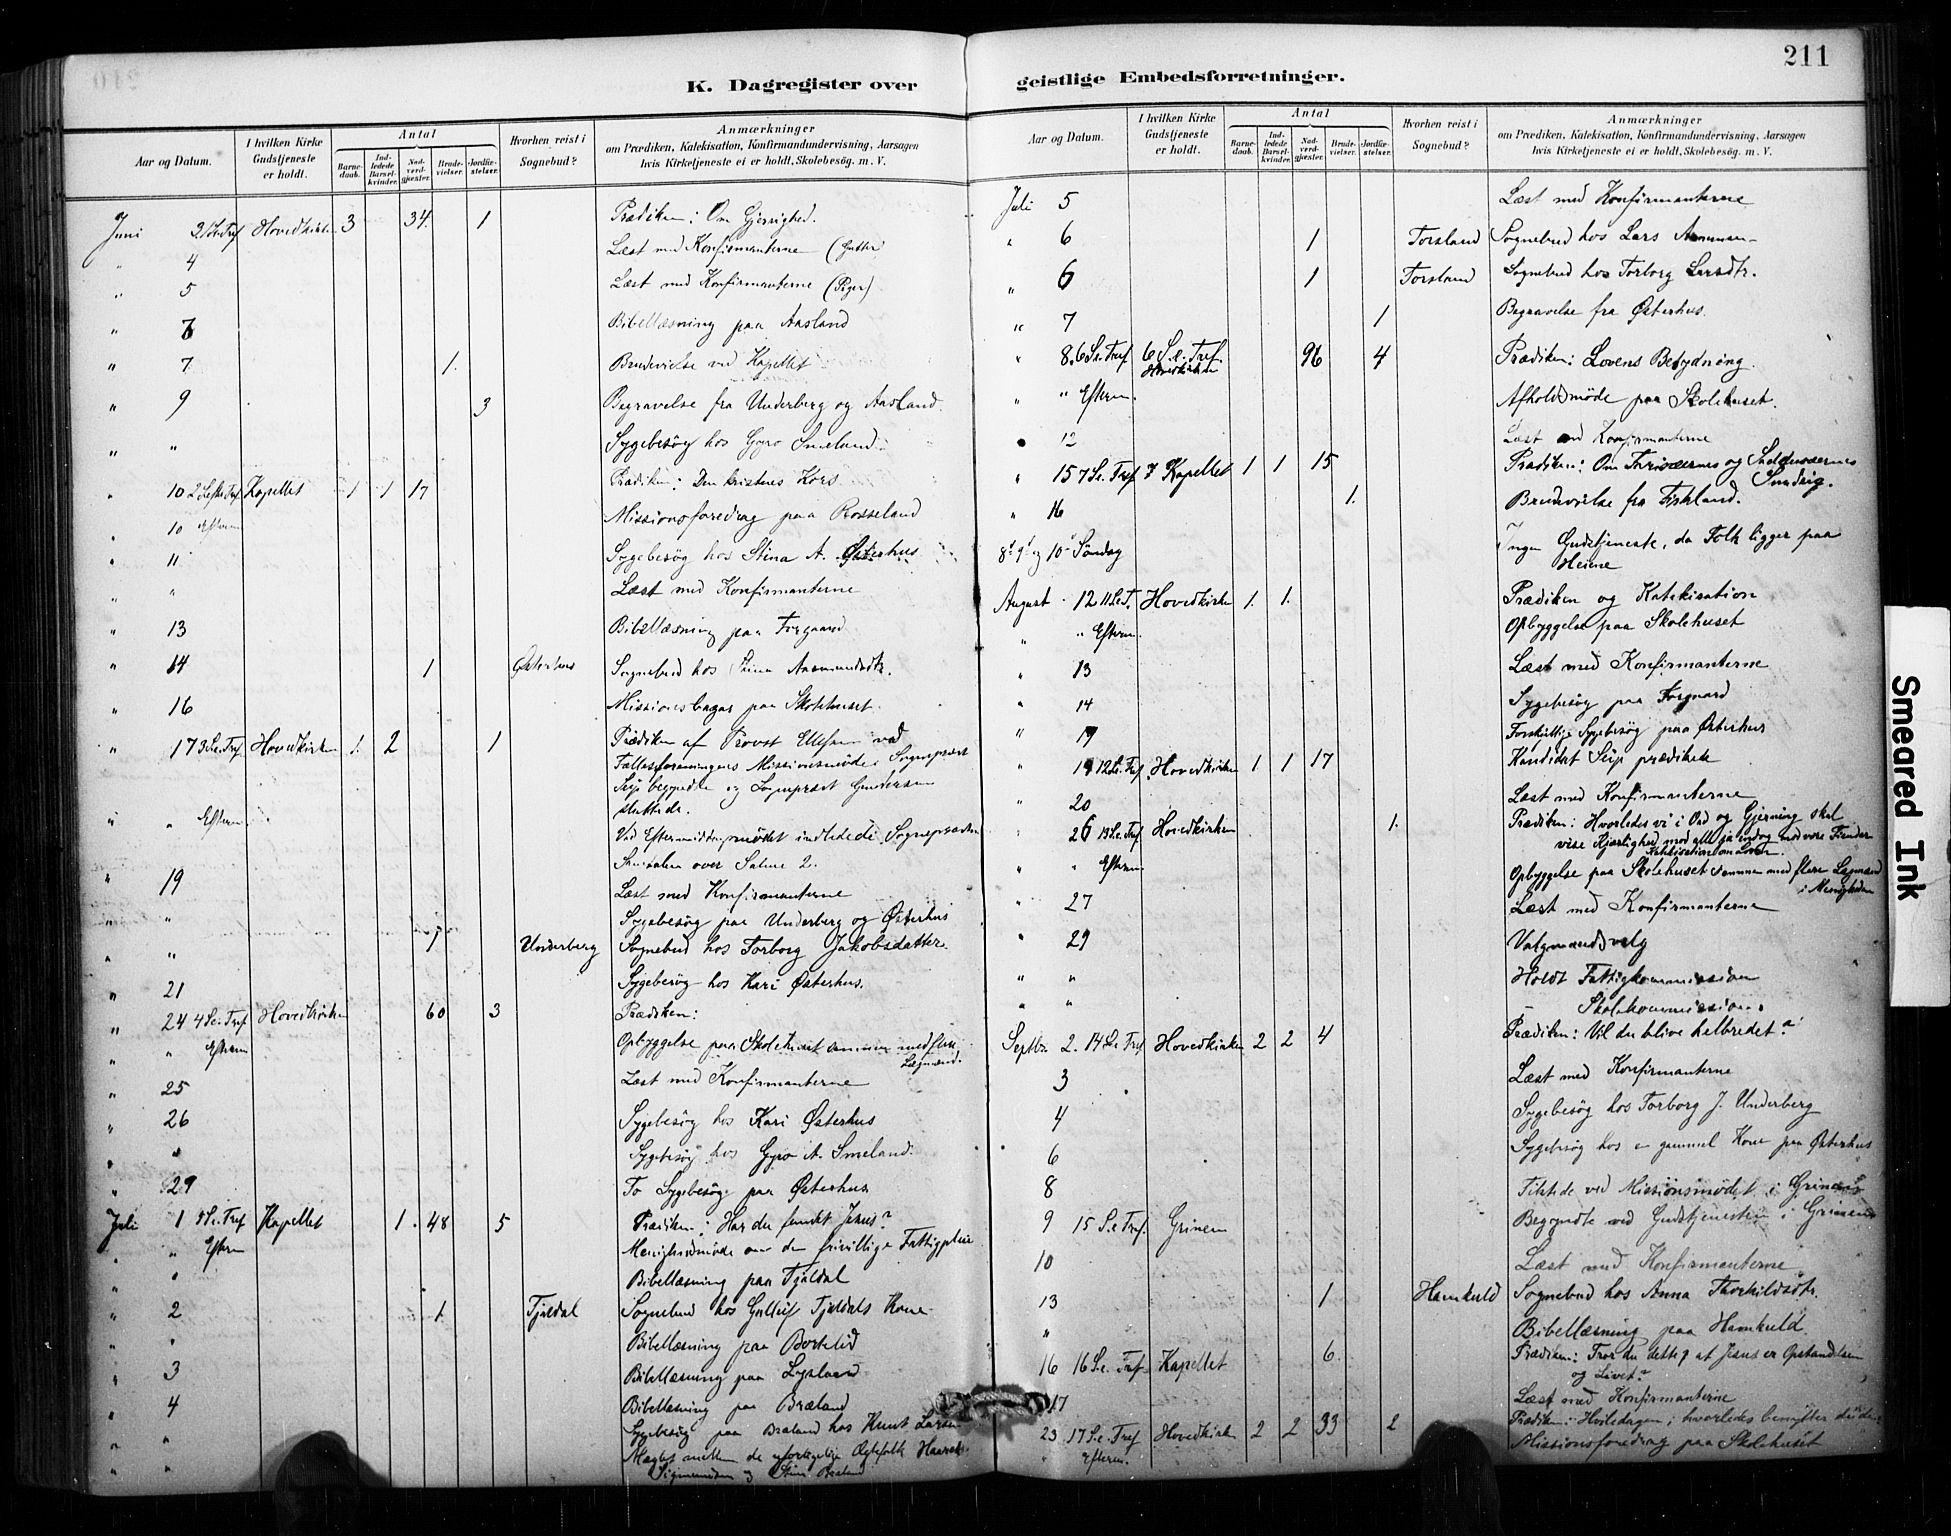 211
K. Dagregister over
geistlige Embedsforretninger.
Aar og Datum.
I hvilken Kirke Gudstjeneste er holdt.
Antal
Barne-daab.
Ind-ledede Barsel-kvinder.
Nad-verd-gjæster.
Brude-vielser.
Jordfæ-stelser.
Hvorhen reist i Sognebud?
Anmærkninger
om Prædiken, Katekisation, Konfirmandundervisning, Aarsagen
hvis Kirketjeneste ei er holdt, Skolebesøg. m. V.
Juni 2 S.e.Tref Hovedkirken 3 34. 1 Prædiken: Om Gjerrighed.
" 4 Læst med Konfirmanterne (Gutter
" 5 Læst med Konfirmanterne (Piger)
" 7 Bibellæsning paa Aasland
" 7 1. Brudevielse ved Kapellet
" 9 3 Begravelse fra Underberg og Aasland.
" " Sygebesøg hos Gyro Smeland.
" 10 2 S.e.Tref Kapellet 1 1 17 Prædiken: Den kristnes Kors
" 10 Efterm Missionsforedrag paa Rosseland
" 11 Sygebesøg hos Stina A. Østerhus
" " Læst med Konfirmanterne
" 13 Bibellæsning paa Forgaard
" 14 1 Østerhus Sognebud hos Stina Aasmundsdtr.
" 16 Missionsbasar paa Skolehuset.
" 17 3 S.e.Tref Hovedkirken 1. 2 1 Prædiken af Provst Ellefsen ved
Fællesforeningens Missionsmøde; Sognepræst
Seip begyndte og Sognepræst Gundersen
sluttede.
" " Efterm Ved Eftermiddagsmødet indledede Sognepræsten
Samtalen over Salme 2.
" 19 Læst med Konfirmanterne
" " Sygebesøg paa Underberg og Østerhus
" " 1 Underberg Sognebud hos Torborg Jakobsdatter
" 21 Sygebesøg hos Kari Østerhus.
" 24 4 S.e.Tref Hovedkirken 60 3 Prædiken:
" " Efterm Opbyggelse paa Skolehuset sammen med flere
Lægmænd.
" 25 Læst med Konfirmanterne
" 26 Sygebesøg hos Kari Østerhus
" " Sygebesøg hos Gyro A. Smeland.
" 29 To Sygebesøg paa Østerhus
Juli 1 5 S.e.Tref Kapellet 1. 48 5 Prædiken: Har du fundet Jesus?
" " Efterm Menighedsmøde om den frivillige Fattigpleie
" " Bibellæsning paa Tjaldal
" 2 1 Tjaldal Sognebud hos Tjaldals Kone
" " Bibellæsning paa Borkelid
" 3 Bibellæsning paa Lysland
" 4 Bibellæsning paa Bræland
" " Sygebesøg paa Bræland hos Knut Larsen
" " Mæglet mellem de uforligelige Ægtefolk
Sigmundsen og Stine
Aar og Datum.
I hvilken Kirke Gudstjeneste er holdt.
Antal
Barne-daab.
Ind-ledede Barsel-kvinder.
Nad-verd-gjæster.
Brude-vielser.
Jordfæ-stelser.
Hvorhen reist i Sognebud?
Anmærkninger
om Prædiken, Katekisation, Konfirmandundervisning, Aarsagen
hvis Kirketjeneste ei er holdt, Skolebesøg. m. V.
Juli 5 Læst med Konfirmanterne
" 6 1 Torsland Sognebud hos Lars
" 6 1 Torsland Sognebud hos Torborg Larsdtr.
" 7 1 Begravelse fra Østerhus.
" 8. 6 S.e.Tref 6 S.e.Tref. Hovedkirken 96 4 Prædiken: Lovens Betydning.
" " Efterm. Afholdsmøde paa Skolehuset.
" 12 Læst med Konfirmanterne
" 15 7 S.e.Tref 7 Kapellet 1 1 15 Prædiken: Om Farisæernes og Sadducæernes
Surdeig.
" 16 1. Brudevielse fra Fiskland.
8de 9de og 10de Søndag Ingen Gudstjeneste, da Folk ligger paa
Heiene
August 12 11 S.e.T. Hovedkirken 1. 1. Prædiken og Katekisation
" " Efterm. Opbyggelse paa Skolehuset
" 13 Læst med Konfirmanterne
" 14 Sygebesøg paa Forgaard
" 17 Forskjellige Sygebesøg paa Østerhus
" 19 12 S.e.Tref. Hovedkirken 1 1 17 Kandidat Seip prædikede
" 20 Læst med Konfirmanterne
" 26 13 S.e.Tref Hovedkirken 1. Prædiken: Hvorledes vi i Ord og Gjerning skal
vise Kjærlighed mod alle ja endog mod vore Fiender.
Katekisation om Loven.
" " Efterm Opbyggelse paa Skolehuset sammen med flere Lægmænd
i Menigheden
" 27 Læst med Konfirmanterne
" 29 Valgmandsvalg
" " Holdt Fattigkommission
" " – Skolekommission.
Septbr. 2. 14 S.e.Tref. Hovedkirken 2 2 4 Prædiken: Vil du blive helbredet?
3 Læst med Konfirmanterne
4 Sygebesøg hos Torborg J. Underberg
6 Sygebesøg hos en gammel Kone paa Østerhus
8 Tilstede ved Missionsmødet i Grinem
9 15 S.e.Tref. Grinem Begyndte ved Gudstjenesten i Grinem
10 Læst med Konfirmanterne
13 1 Hamkuld Sognebud hos Anna Thorkildsdtr.
" Bibellæsning paa Hamkuld.
16 16 S.e.Tref Kapellet 6. Prædiken: Tror du dette, at Jesus er Opstandelsen
og Livet?
17 Læst med Konfirmanterne
23 17 S.e.Tref Hovedkirken 2 2 33 2 Prædiken: Hviledagen; hvorledes benytter du den?
" Efterm. Missionsforedrag paa Skolehuset
Smeared Ink